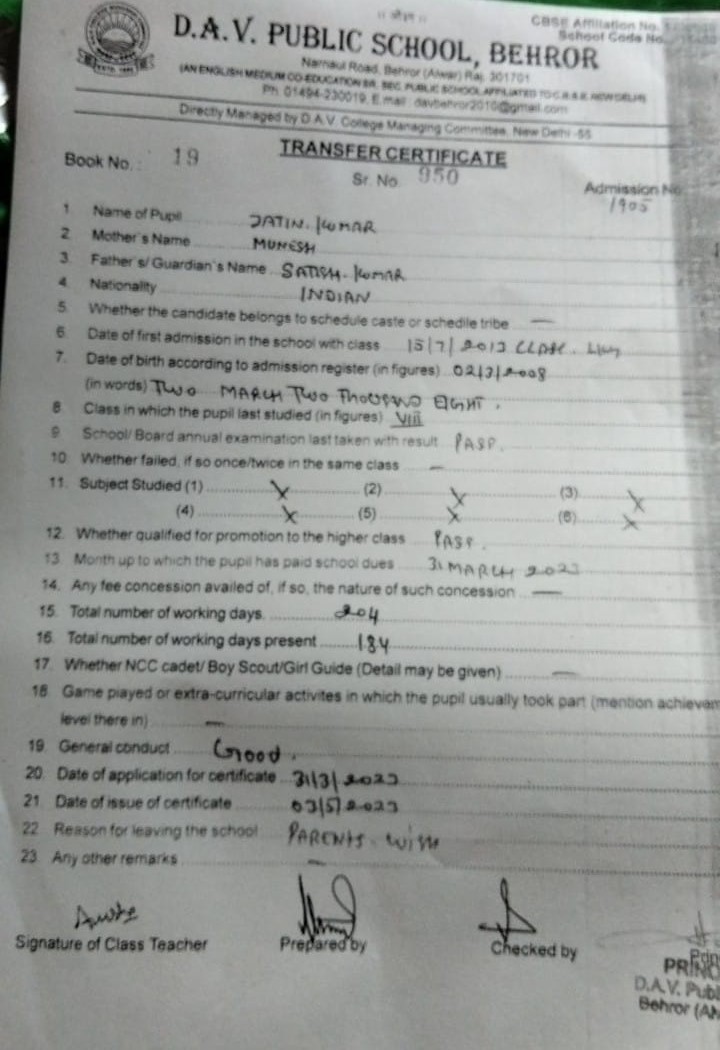 ॥ ओ३म् ॥
CBSE Affiliation No.
School Code No.
D.A.V. PUBLIC SCHOOL, BEHROR
Narnaul Road, Behror (Alwar) Raj. 301701
(AN ENGLISH MEDIUM CO-EDUCATION SR. SEC. PUBLIC SCHOOL AFFILIATED TO C.B.S.E. NEW DELHI)
Ph. 01494-230019, E.mail: davbehror2010@gmail.com
Directly Managed by D.A.V. College Managing Committee, New Delhi -55
TRANSFER CERTIFICATE
Book No. : 19
Sr. No. 950
Admission No.
1905
1. Name of Pupil JATIN. KUMAR
2. Mother's Name MUNESH
3. Father's/ Guardian's Name SATISH. KUMAR
4. Nationality INDIAN
5. Whether the candidate belongs to schedule caste or schedile tribe —
6. Date of first admission in the school with class 15/7/2013 CLASS.
7. Date of birth according to admission register (in figures) 02/3/2008
(in words) TWO MARCH TWO THOUSAND EIGHT.
8. Class in which the pupil last studied (in figures) VIII
9. School/ Board annual examination last taken with result PASS.
10. Whether failed, if so once/twice in the same class —
11. Subject Studied (1) X (2) X (3) X
(4) X (5) X (6) X
12. Whether qualified for promotion to the higher class PASS.
13. Month up to which the pupil has paid school dues 31 MARCH 2023
14. Any fee concession availed of, if so, the nature of such concession —
15. Total number of working days. 204
16. Total number of working days present 184
17. Whether NCC cadet/ Boy Scout/Girl Guide (Detail may be given) —
18. Game played or extra-curricular activites in which the pupil usually took part (mention achievem
level there in) —
19. General conduct Good.
20. Date of application for certificate 31/3/2023
21. Date of issue of certificate 03/5/2023
22. Reason for leaving the school PARENTS. WISH
23. Any other remarks —
Signature of Class Teacher Prepared by Checked by Prin
PRINC
D.A.V. Publ
Behror (Al